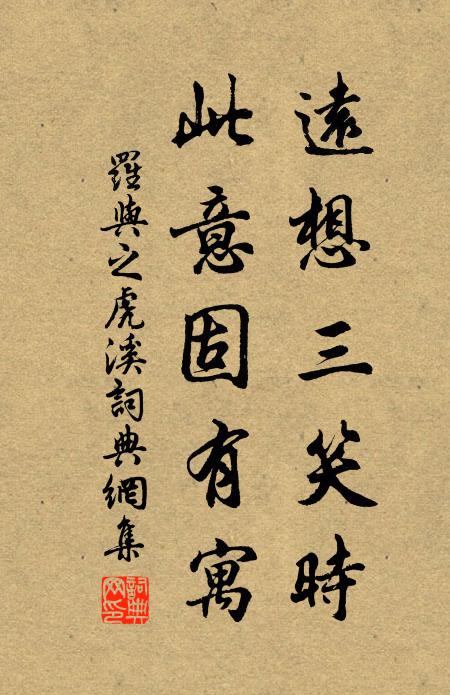 遠想三笑時
此意固有寓
羅與之虎溪詞典網集
詞典网印